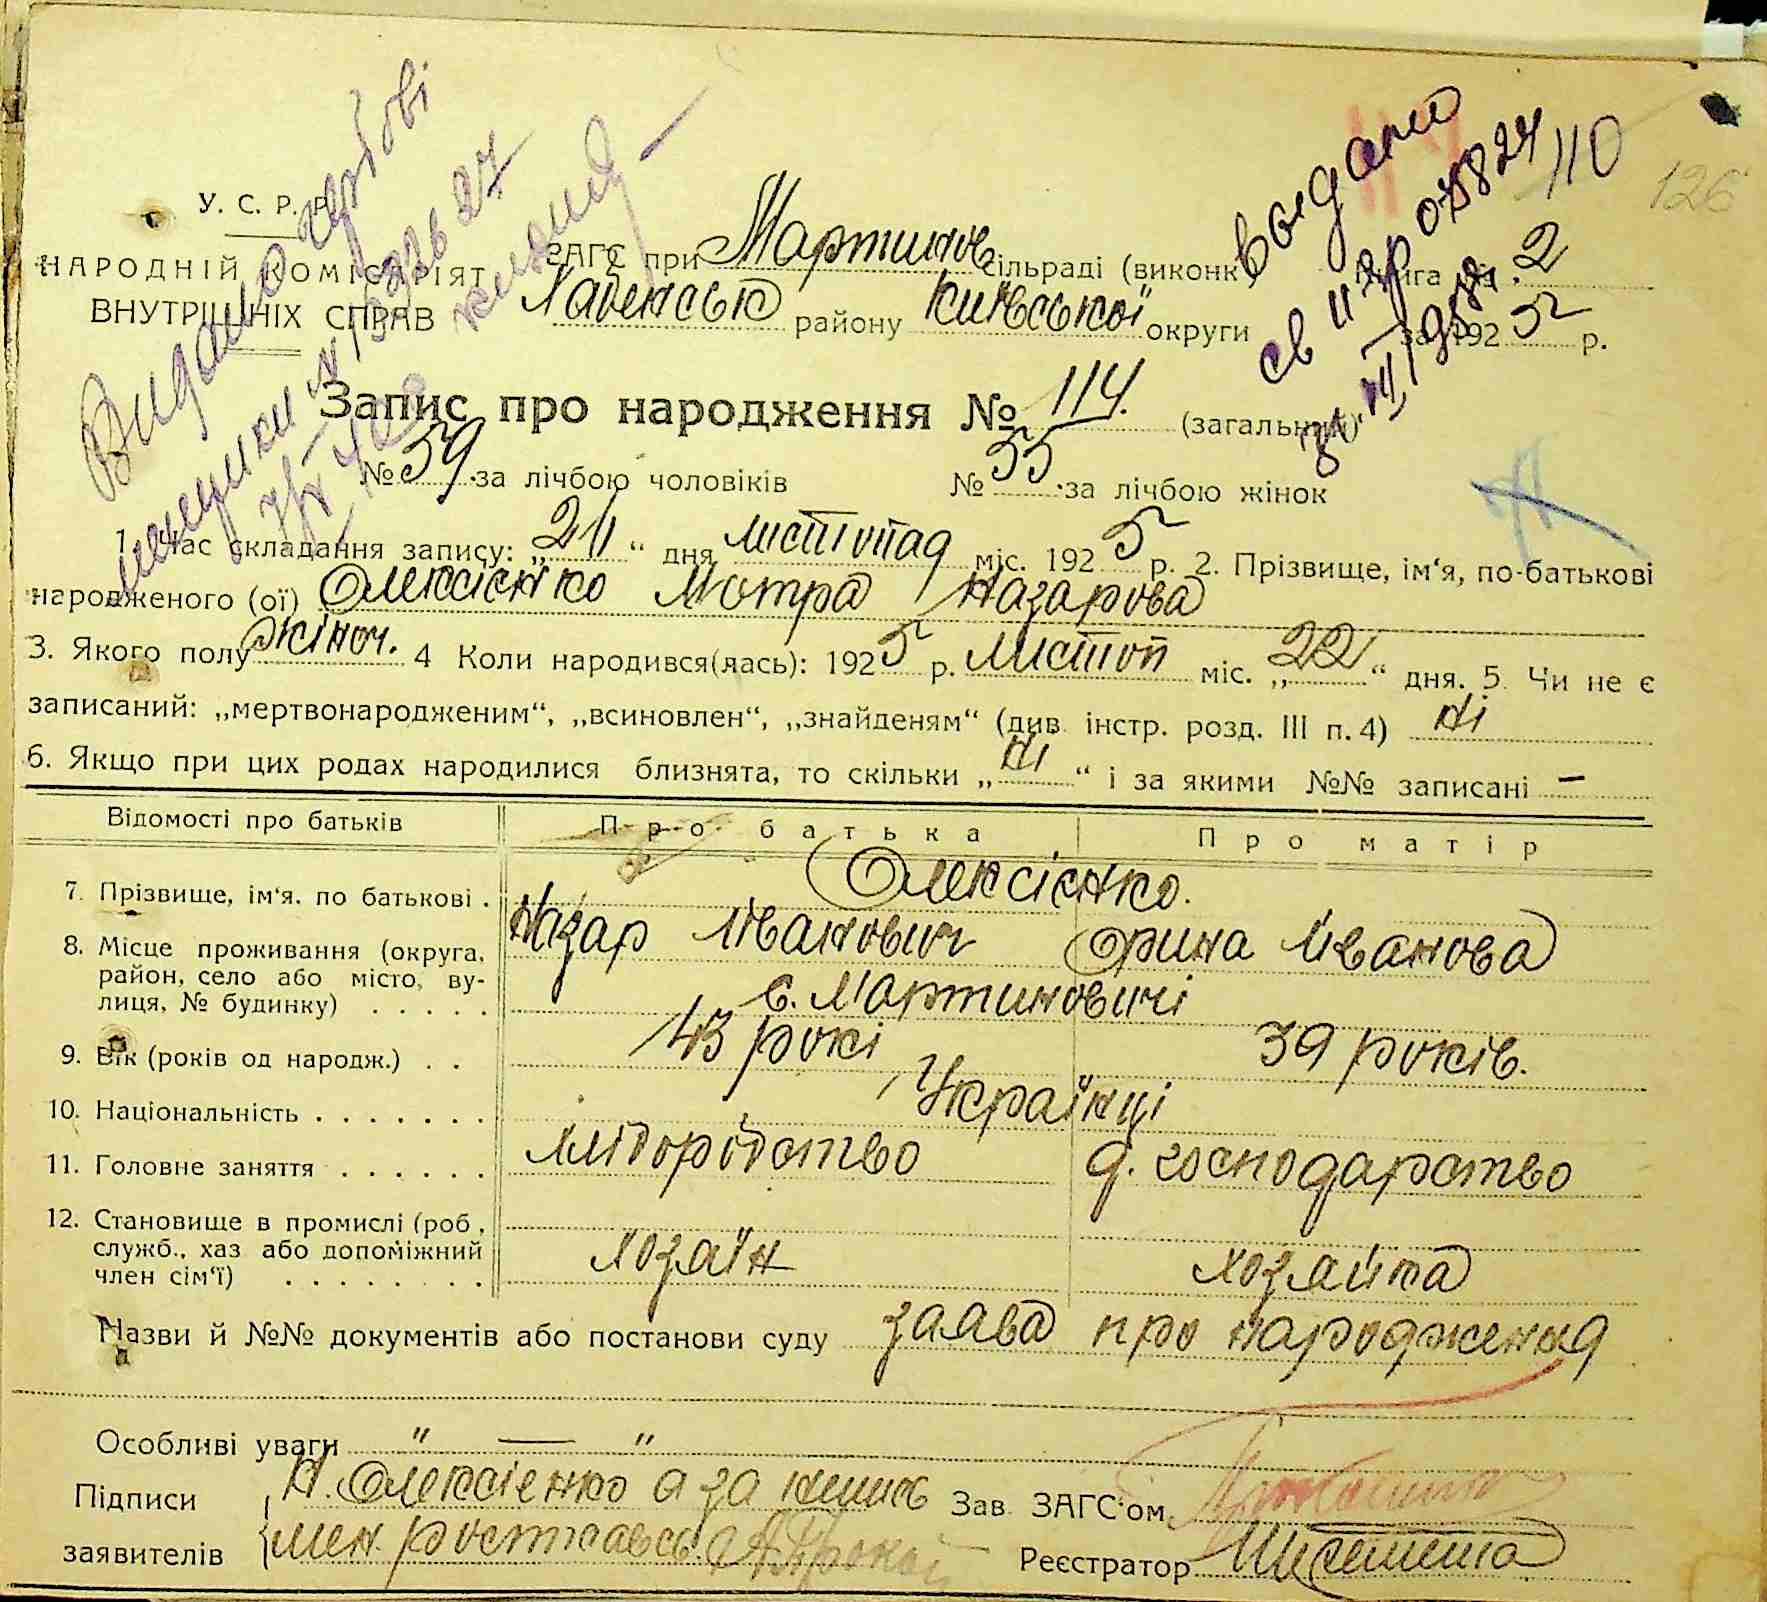 Видано
У. С. Р. Р.
НАРОДНІЙ КОМІСАРІЯТ
ВНУТРІШНІХ СПРАВ
ЗАГС при Мартинов сільраді (виконк.)
Хабенськ району Київської округи
Книга № 2
за 1925 р.
выдано
св
110
126
Запис про народження № 114. (загальний)
№ 59 за лічбою чоловіків № 55 за лічбою жінок
1. Час складання запису: „24“ дня листопад міс. 1925 р. 2. Прізвище, ім‘я, по-батькові
народженого (ої) Олексієнко Мотра Назарова
3. Якого полу жіноч. 4 Коли народився(лась): 1925 р. листоп міс. „22“ дня. 5. Чи не є
записаний: „мертвонародженим“, „всиновлен“, „знайденям“ (див. інстр. розд. III п. 4) ні
6. Якщо при цих родах народилися близнята, то скільки „ні“ і за якими №№ записані —
Відомості про батьків Про батька Про матір
7. Прізвище, ім‘я. по батькові . Олексієнко.
Назар Иванович Орина Иванова
8. Місце проживання (округа, район, село або місто, вулиця, № будинку) . . . . . с. Мартиновичі
9. Вік (років од народж.) . . 43 рокі 39 років.
10. Національність . . . . . . . Українці
11. Головне заняття . . . . . . хліборобство д. господарство
12. Становище в промислі (роб., служб., хаз або допоміжний член сім‘ї) . . . . . . . . хозяїн хозяйка
Назви й №№ документів або постанови суду заява про народження
Особливі уваги " — "
Підписи заявителів Н. Олексієнко а за
Зав. ЗАГС‘ом
Реєстратор